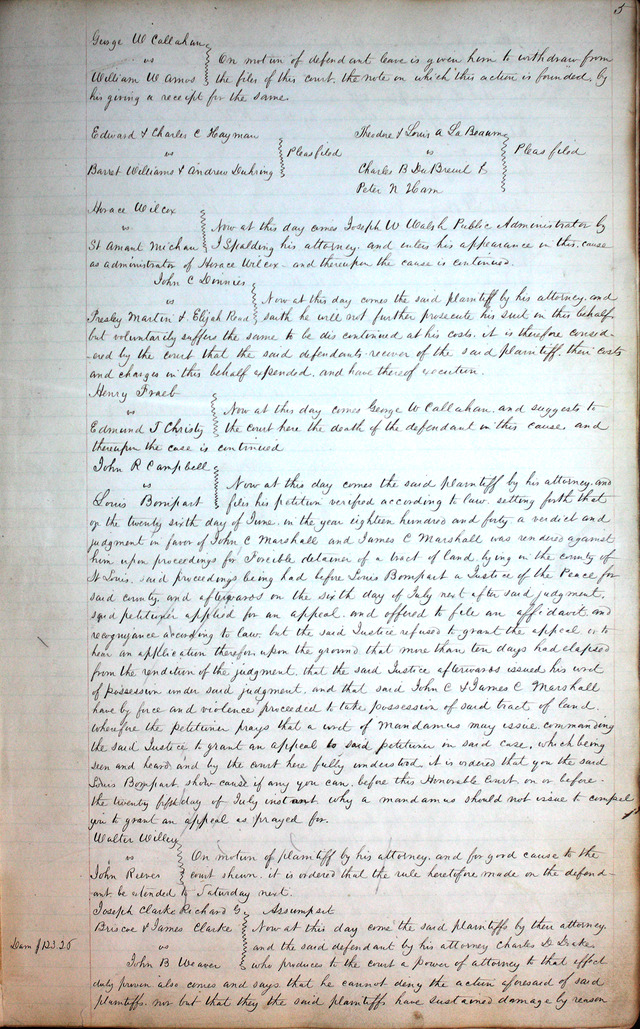 5
George W Callahan
vs
William W Amos
On motion of defendant leave is given him to withdraw from
the files of this court, the note on which this action is founded, by
his giving a receipt for the same.
Edward & Charles C Hayman
vs
Barret Williams & Andrew Duhring
Pleas filed
Theodore & Louis A La Beaume
vs
Charles B De Breuil &
Peter N Ham
Pleas filed
Horace Wilcox
vs
St Amant Michau
Now at this day comes Joseph W Walsh Public Administrator by
J Spalding his attorney. and enters his appearance in this, cause
as administrator of Horace Wilcox – and thereupon the cause is continued.
John C Dinnies
vs
Presley Martin & Elijah Read
Now at this day comes the said plaintiff by his attorney. and
saith he will not further prosecute his suit in this behalf
but voluntarily suffers the same to be dis continued at his costs. it is therefore consid-
ered by the court that the said defendants recover of the said plaintiff, their costs
and charges in this behalf expended. and have thereof execution.
Henry Fraeb
vs
Edmund T Christy
Now at this day comes George W Callahan, and suggests to
the court here the death of the defendant in this cause, and
thereupon the case is continued
John R Campbell
vs
Louis Bompart
Now at this day comes the said plaintiff by his attorney. and
files his petition verified according to law. setting forth that
on the twenty sixth day of June. in the year eighteen hundred and forty a verdict and
judgment in favor of John C Marshall and James C Marshall was rendered against
him upon proceedings for Forcible detainer of a tract of land, lying in the county of
St Louis. said proceedings being had before Louis Bompart a Justice of the Peace for
said county. and afterwards on the sixth day of July next after said judgment,
said petitioner applied for an appeal. and offered to file an affidavit. and
recognizance according to law. but the said Justice refused to grant the appeal or to
hear an application therefor, upon the ground that more than ten days had elapsed
from the rendition of the judgment. that the said Justice afterwards issued his writ
of possession under said judgment, and that said John C & James C Marshall
have by force and violence proceeded to take possession of said tract of land.
wherefore the petitioner prays that a writ of Mandamus may issue commanding
the said Justice to grant an appeal to said petitioner in said case, which being
seen and heard and by the court here fully understood. it is ordered that you the said
Louis Bompart, show cause if any you can, before this Honorable Court, on or before
the twenty first day of July instant. why a mandamus should not issue to compel
you to grant an appeal as prayed for.
Walter Willey
vs
John Reever
On motion of plaintiff by his attorney. and for good cause to the
court shewn. it is ordered that the rule heretofore made on the defend-
ant be extended to Saturday next.
Joseph Clarke Richard G
Briscoe & James Clarke
vs
John B Weaver
Dam $123.26
Assumpsit
Now at this day come the said plaintiffs by their attorney.
and the said defendant by his attorney Charles D Drake
who produces to the court a power of attorney to that effect
duly proven also comes and says that he cannot deny the action aforesaid of said
plaintiffs. nor but that they the said plaintiffs have sustained damage by reason